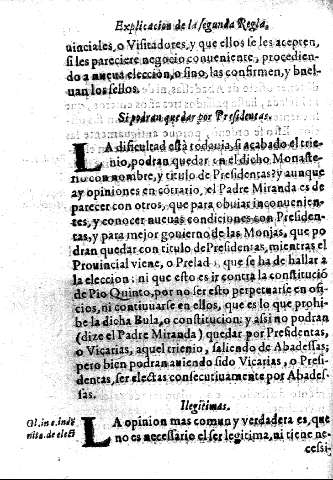 Explicacion de la segunda Regla,
uinciales, o Visitadores, y que ellos se les acepten,
si les pareciere negocio conueniente, procedien-
do a nueua elección, o sino, las confirmen, y buel-
uan los sellos.
Si podran quedar por Presidentas.
LA dificultad està todauia, si acabado el trie-
nio, podran quedar en el dicho Monaste-
rio con nombre, y titulo de Presidentas? y aunque
ay opiniones en cõtrario, el Padre Miranda es de
parecer con otros, que para obuiar inconuenien-
tes, y conocer nueuas condiciones con Presiden-
tas, y para mejor gouierno de las Monjas, que po
dran quedar con titulo de Presidentas, mientras el
Prouincial viene, o Prelado, que se ha de hallar a
la eleccion: ni que esto es ir contra la constitució
de Pio Quinto, por no ser esto perpetuarse en ofi-
cios, ni continuarse en ellos, que es lo que prohi-
be la dicha Bula, o constitucion: y assi no podran
(dize el Padre Miranda) quedar por Presidentas,
o Vicarias, aquel trienio, saliendo de Abadessas;
pero bien podran auiendo sido Vicarias, o Presi-
dentas, ser electas consecutiuamente por Abades-
sas.
Ilegitimas.
Gl. in c. indẽ
nita. de electi
LA opinion mas comun y verdadera es, que
no es necessario el ser legitima, ni tiene ne-
cessi-